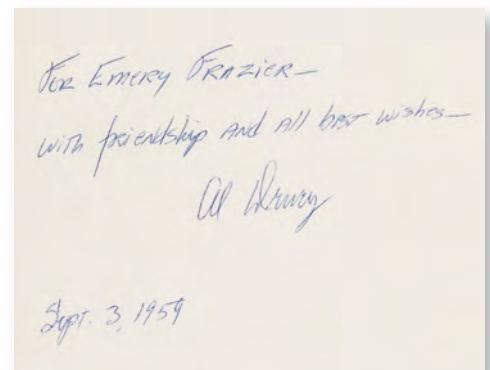 For Emery Frazier—
with friendship and all best wishes—
Al Drury
Sept. 3, 1959